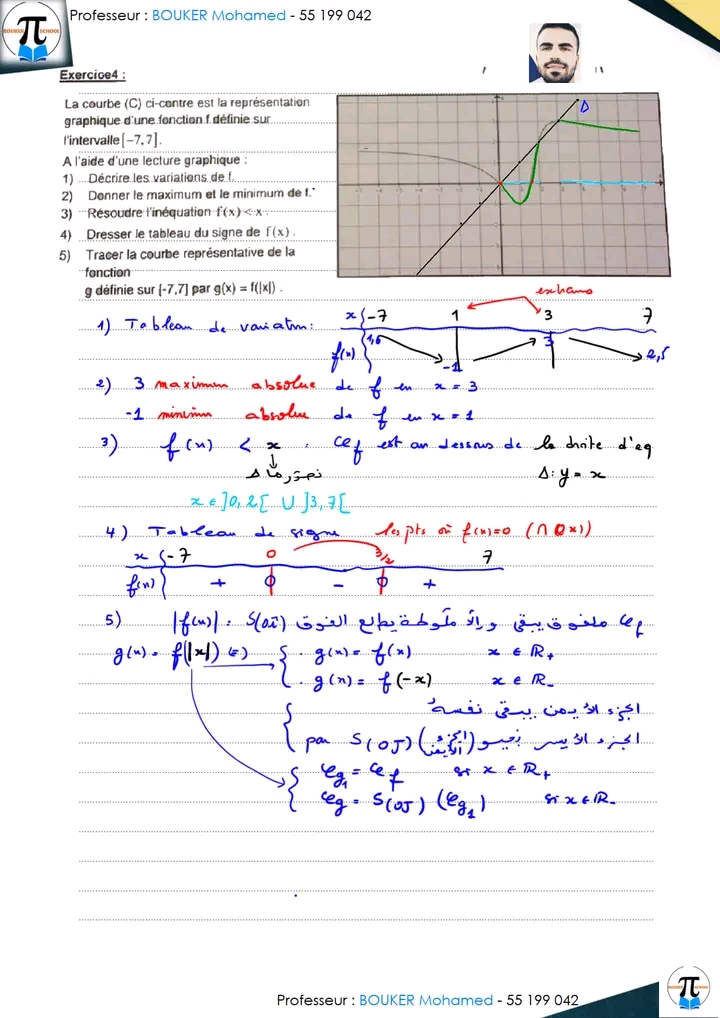 Professeur : BOUKER Mohamed - 55 199 042
π
BOUKER SCHOOL
Exercice4 :
La courbe (C) ci-contre est la représentation
graphique d'une fonction f définie sur
l'intervalle [-7,7].
A l'aide d'une lecture graphique :
1) Décrire les variations de f.
2) Donner le maximum et le minimum de f.
3) Résoudre l'inéquation f(x) < x.
4) Dresser le tableau du signe de f(x).
5) Tracer la courbe représentative de la
fonction
g définie sur [-7,7] par g(x) = f(|x|).
Δ
1) Tableau de variation:
x -7 1 3 7
f(x) 1,6 -1 3 2,5
2) 3 maximum absolue de f en x = 3
-1 minimum absolue de f en x = 1
3) f(x) < x . 𝒞f est au dessous de la droite d'eq
Δ Δ: y = x
x ∈ ]0,2[ ∪ ]3,7[
4) Tableau de signe les pts où f(x)=0 (∩ Ox))
x -7 0 3/2 7
f(x) + 0 - 0 +
5) |f(x)| : الفوق يبقى
g(x) = f(|x|) (=) { . g(x) = f(x) x ∈ ℝ+
. g(x) = f(-x) x ∈ ℝ-
الجزء الأيمن يبقى نفسه
الجزء الأيسر (الجزء الأيمن) par S(OJ)
{ 𝒞g1 = 𝒞f si x ∈ ℝ+
𝒞g = S(OJ) (𝒞g1) si x ∈ ℝ-
Professeur : BOUKER Mohamed - 55 199 042
π